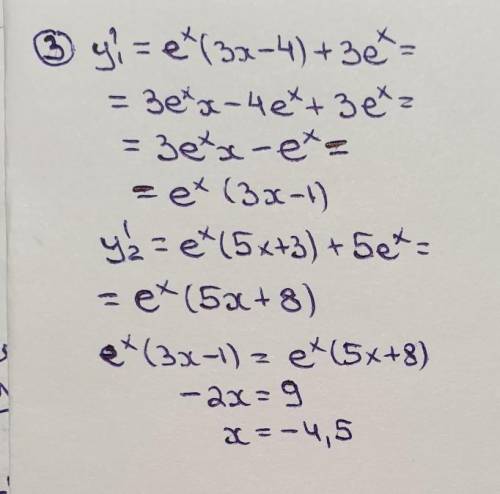 ③ y₁' = eˣ(3x-4) + 3eˣ =
= 3eˣx - 4eˣ + 3eˣ =
= 3eˣx - eˣ =
= eˣ (3x-1)
y₂' = eˣ(5x+3) + 5eˣ =
= eˣ(5x+8)
eˣ(3x-1) = eˣ(5x+8)
-2x = 9
x = -4,5